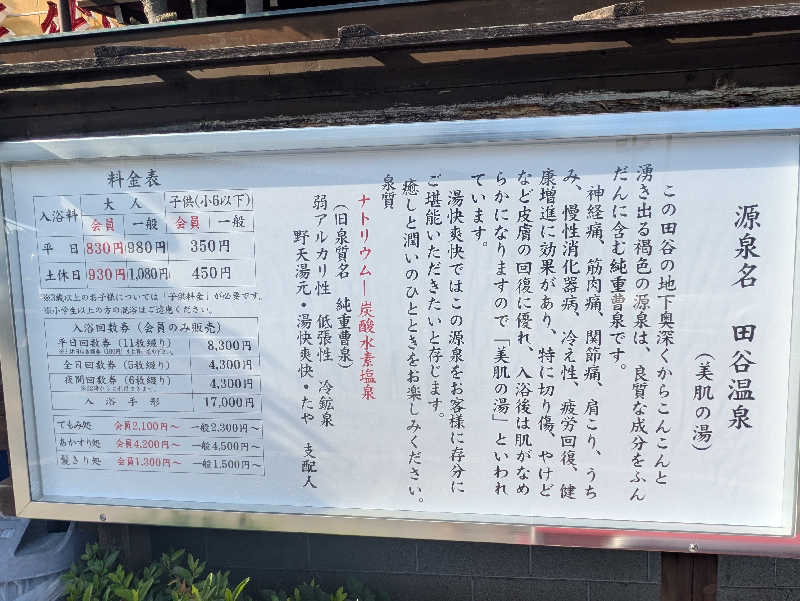 源泉名　田谷温泉
（美肌の湯）
この田谷の地下奥深くからこんこんと
湧き出る褐色の源泉は、良質な成分をふん
だんに含む純重曹泉です。
神経痛、筋肉痛、関節痛、肩こり、うち
み、慢性消化器病、冷え性、疲労回復、健
康増進に効果があり、特に切り傷、やけど
など皮膚の回復に優れ、入浴後は肌がなめ
らかになりますので「美肌の湯」といわれ
ています。
湯快爽快ではこの源泉をお客様に存分に
ご堪能いただきたいと存じます。
癒しと潤いのひとときをお楽しみください。
泉質
ナトリウム－炭酸水素塩泉
（旧泉質名　純重曹泉）
弱アルカリ性　低張性　冷鉱泉
野天湯元・湯快爽快・たや　支配人
料金表
入浴料　大人　子供(小6以下)
会員　一般　会員　一般
平日　830円　980円　350円
土休日　930円　1,080円　450円
※3歳以上のお子様については「子供料金」が必要です。
※小学生以上の方の混浴はご遠慮ください。
入浴回数券（会員のみ販売）
平日回数券（11枚綴り）　8,300円
全日回数券（5枚綴り）　4,300円
夜間回数券（6枚綴り）　4,300円
入浴手形　17,000円
てもみ処　会員2,100円～　一般2,300円～
あかすり処　会員4,200円～　一般4,500円～
髪きり処　会員1,300円～　一般1,500円～